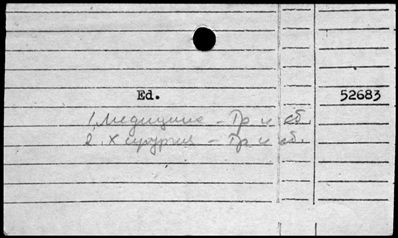 Ed. 52683
1. Медицина - Тр. и сб.
2. Хирургия - Тр. и сб.